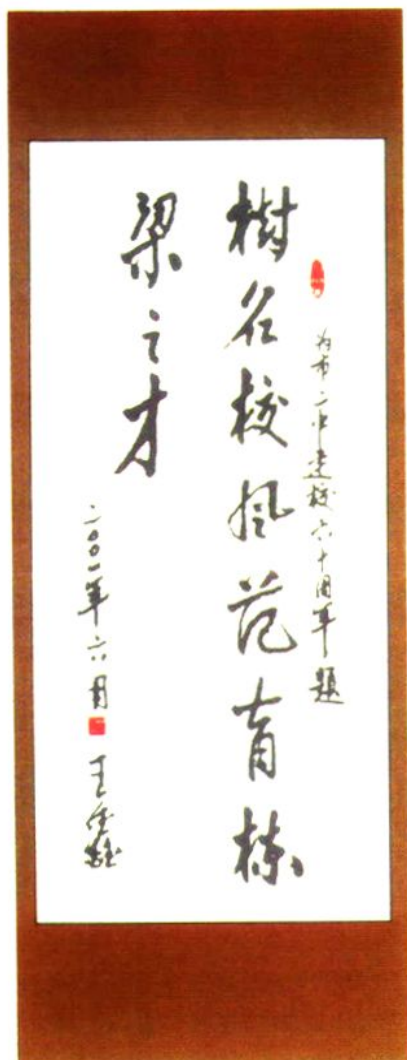 为市二中建校六十周年题
樹名校風范育栋
梁之才
二〇〇一年六月